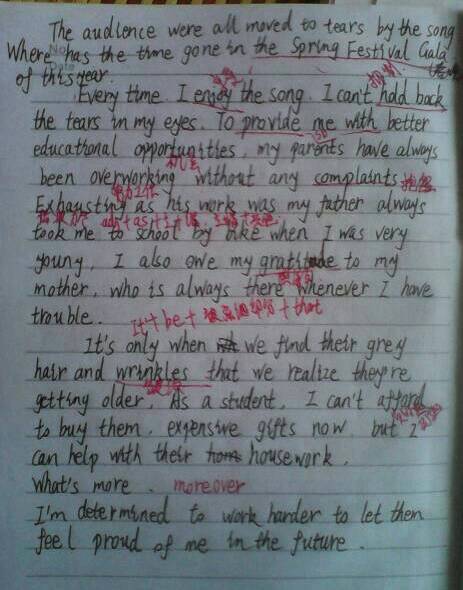 The audience were all moved to tears by the song
Where has the time gone in the Spring Festival Gala
of this year.
Every time I enjoy the song. I can't hold back
the tears in my eyes. To provide me with better
educational opportunities, my parents have always
机会
been overworking without any complaints 抱怨
努力工作
Exhausting as his work was my father always
adj + as + 主 + 谓,
took me to school by bike when I was very
young, I also owe my gratitude to my
mother, who is always there whenever I have
trouble.
It + be + 被强调部分 + that
It's only when we find their grey
hair and wrinkles that we realize they're
getting older. As a student, I can't afford
to buy them, expensive gifts now, but I
can help with their housework.
What's more. moreover
I'm determined to work harder to let them
feel proud of me in the future.